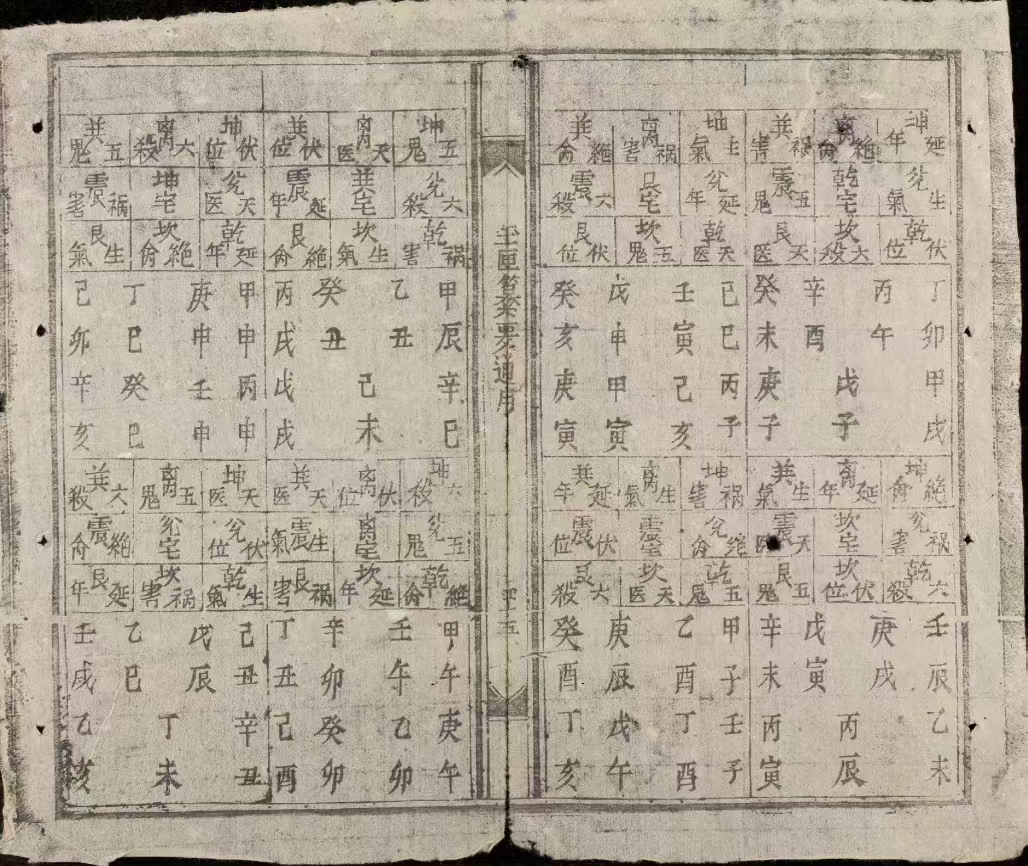 坤延年 离絶命 巽祸害
兌生氣 乾宅 震五鬼
乾伏位 坎六殺 艮天医
丁卯甲戌
丙午
戊子
辛酉
癸未庚子
坤生氣 离祸害 巽絶命
兌延年 艮宅 震六殺
乾天医 坎五鬼 艮伏位
己巳丙子
壬寅己亥
戊申甲寅
癸亥庚寅
坤絶命 离延年 巽生氣
兌祸害 坎宅 震天医
乾六殺 坎伏位 艮五鬼
壬辰乙未
庚戌
丙辰
戊寅
辛未丙寅
坤祸害 离生氣 巽延年
兌絶命 震宅 震伏位
乾五鬼 坎天医 艮六殺
甲子壬子
乙酉丁酉
庚辰戊午
癸酉丁亥
玉匣要通
十五
坤五鬼 离天医 巽伏位
兌六殺 巽宅 震延年
乾祸害 坎生氣 艮絶命
甲辰辛巳
乙丑
己未
癸丑
丙戌戊戌
坤伏位 离六殺 巽五鬼
兌天医 坤宅 震祸害
乾延年 坎絶命 艮生氣
甲申丙申
庚申壬申
丁巳癸巳
己卯辛亥
坤六殺 离伏位 巽天医
兌五鬼 离宅 震生氣
乾絶命 坎延年 艮祸害
甲午庚午
壬午乙卯
辛卯癸卯
丁丑己酉
坤天医 离五鬼 巽六殺
兌伏位 兌宅 震絶命
乾生氣 坎祸害 艮延年
己丑辛丑
戊辰
丁未
乙巳
壬戌乙亥